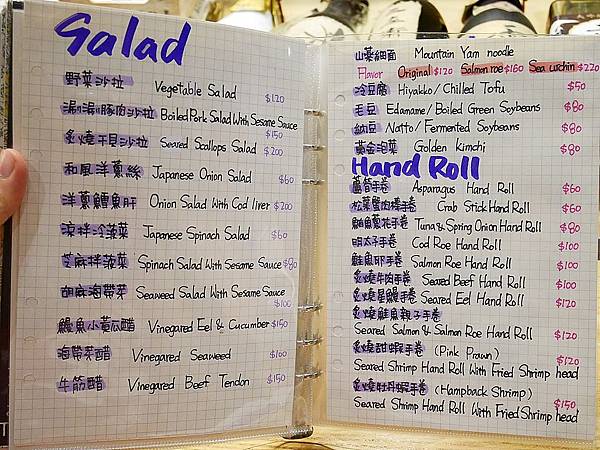 Salad
野菜沙拉 Vegetable Salad $120
涮涮豚肉沙拉 Boiled Pork Salad With Sesame Sauce
$150
炙燒干貝沙拉 Seared Scallops Salad $200
和風洋蔥絲 Japanese Onion Salad $60
洋蔥鱈魚肝 Onion Salad With Cod liver $200
涼拌冷菠菜 Japanese Spinach Salad $60
芝麻拌菠菜 Spinach Salad With Sesame Sauce $80
胡麻海帶芽 Seaweed Salad With Sesame Sauce
$100
鰻魚小黃瓜醋 Vinegared Eel & Cucumber $150
海帶芽醋 Vinegared Seaweed $100
牛筋醋 Vinegared Beef Tendon $150
山藥細麵 Mountain Yam noodle
Flavor Original $120 Salmon roe $160 Sea urchin $220
冷豆腐 Hiyakko/Chilled Tofu $50
毛豆 Edamame/Boiled Green Soybeans $80
納豆 Natto/Fermented Soybeans $80
黃金泡菜 Golden Kimchi $80
Hand Roll
蘆筍手卷 Asparagus Hand Roll $60
松葉蟹肉棒手卷 Crab Stick Hand Roll $60
鮪魚蔥花手卷 Tuna & Spring Onion Hand Roll $80
明太子手卷 Cod Roe Hand Roll $100
鮭魚卵手卷 Salmon Roe Hand Roll $100
炙燒牛肉手卷 Seared Beef Hand Roll $100
炙燒星鰻手卷 Seared Eel Hand Roll $120
炙燒鮭魚親子手卷
Seared Salmon & Salmon Roe Hand Roll $120
炙燒甜蝦手卷 (Pink Prawn) $120
Seared Shrimp Hand Roll With Fried Shrimp head
炙燒牡丹蝦手卷 (Humpback Shrimp)
$150
Seared Shrimp Hand Roll With Fried Shrimp head